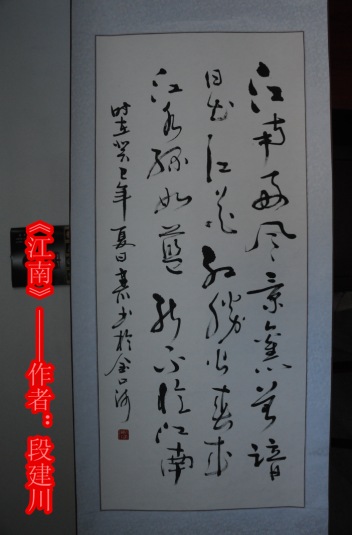 江南好风景舊曾谙
日出江花红勝火春来
江水绿如藍能不憶江南
时在癸巳年夏日书於金口河
《江南》——作者：段建川